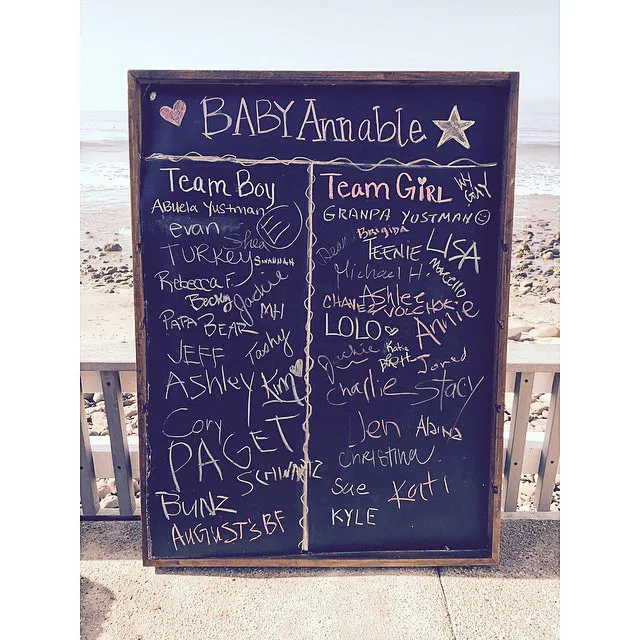 BABY Annable
Team Boy
Abuela Yustman
evan
E
Shea
TURKEY
Savannah
Rebecca F.
Becky
Jackie
PAPA BEAR
MH
JEFF
Toshy
Ashley
Kim
Cory
PAGET
SCHWARTZ
BUNZ
AUGUST'S BF
Team GIRL
GRANPA YUSTMAN
Brigina
Dean
TEENIE
LISA
Michael H.
Marcello
Ashlee
CHAVEZ VOLCHOK
LOLO
Annie
Jackie
Katie
Brett
Jared
Charlie
Stacy
Jen
Alaina
CHRISTINA
Sue
Kaiti
KYLE